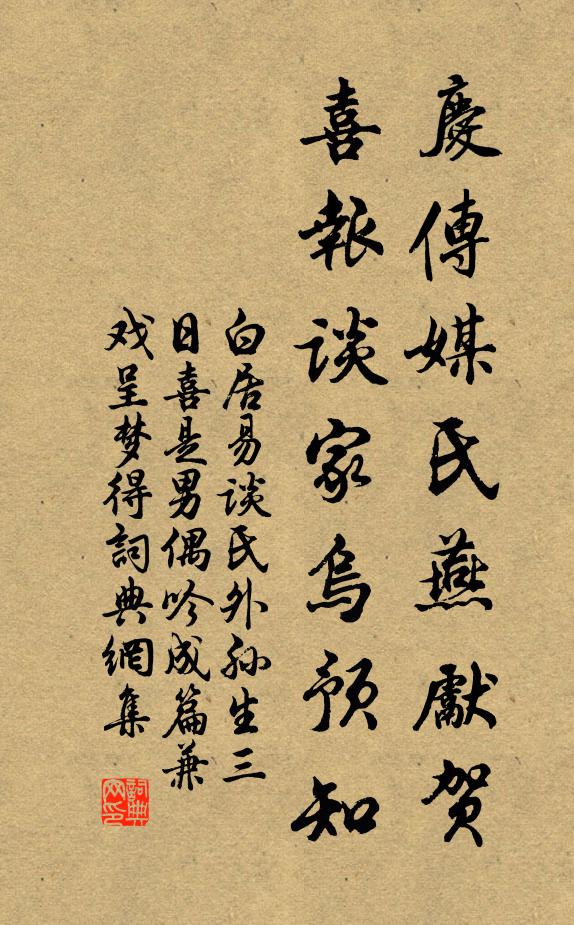 慶傳媒氏燕獻賀
喜報谈家烏预知
白居易谈氏外孙生三
日喜是男偶吟成篇兼
戏呈梦得詞典網集
詞典网印